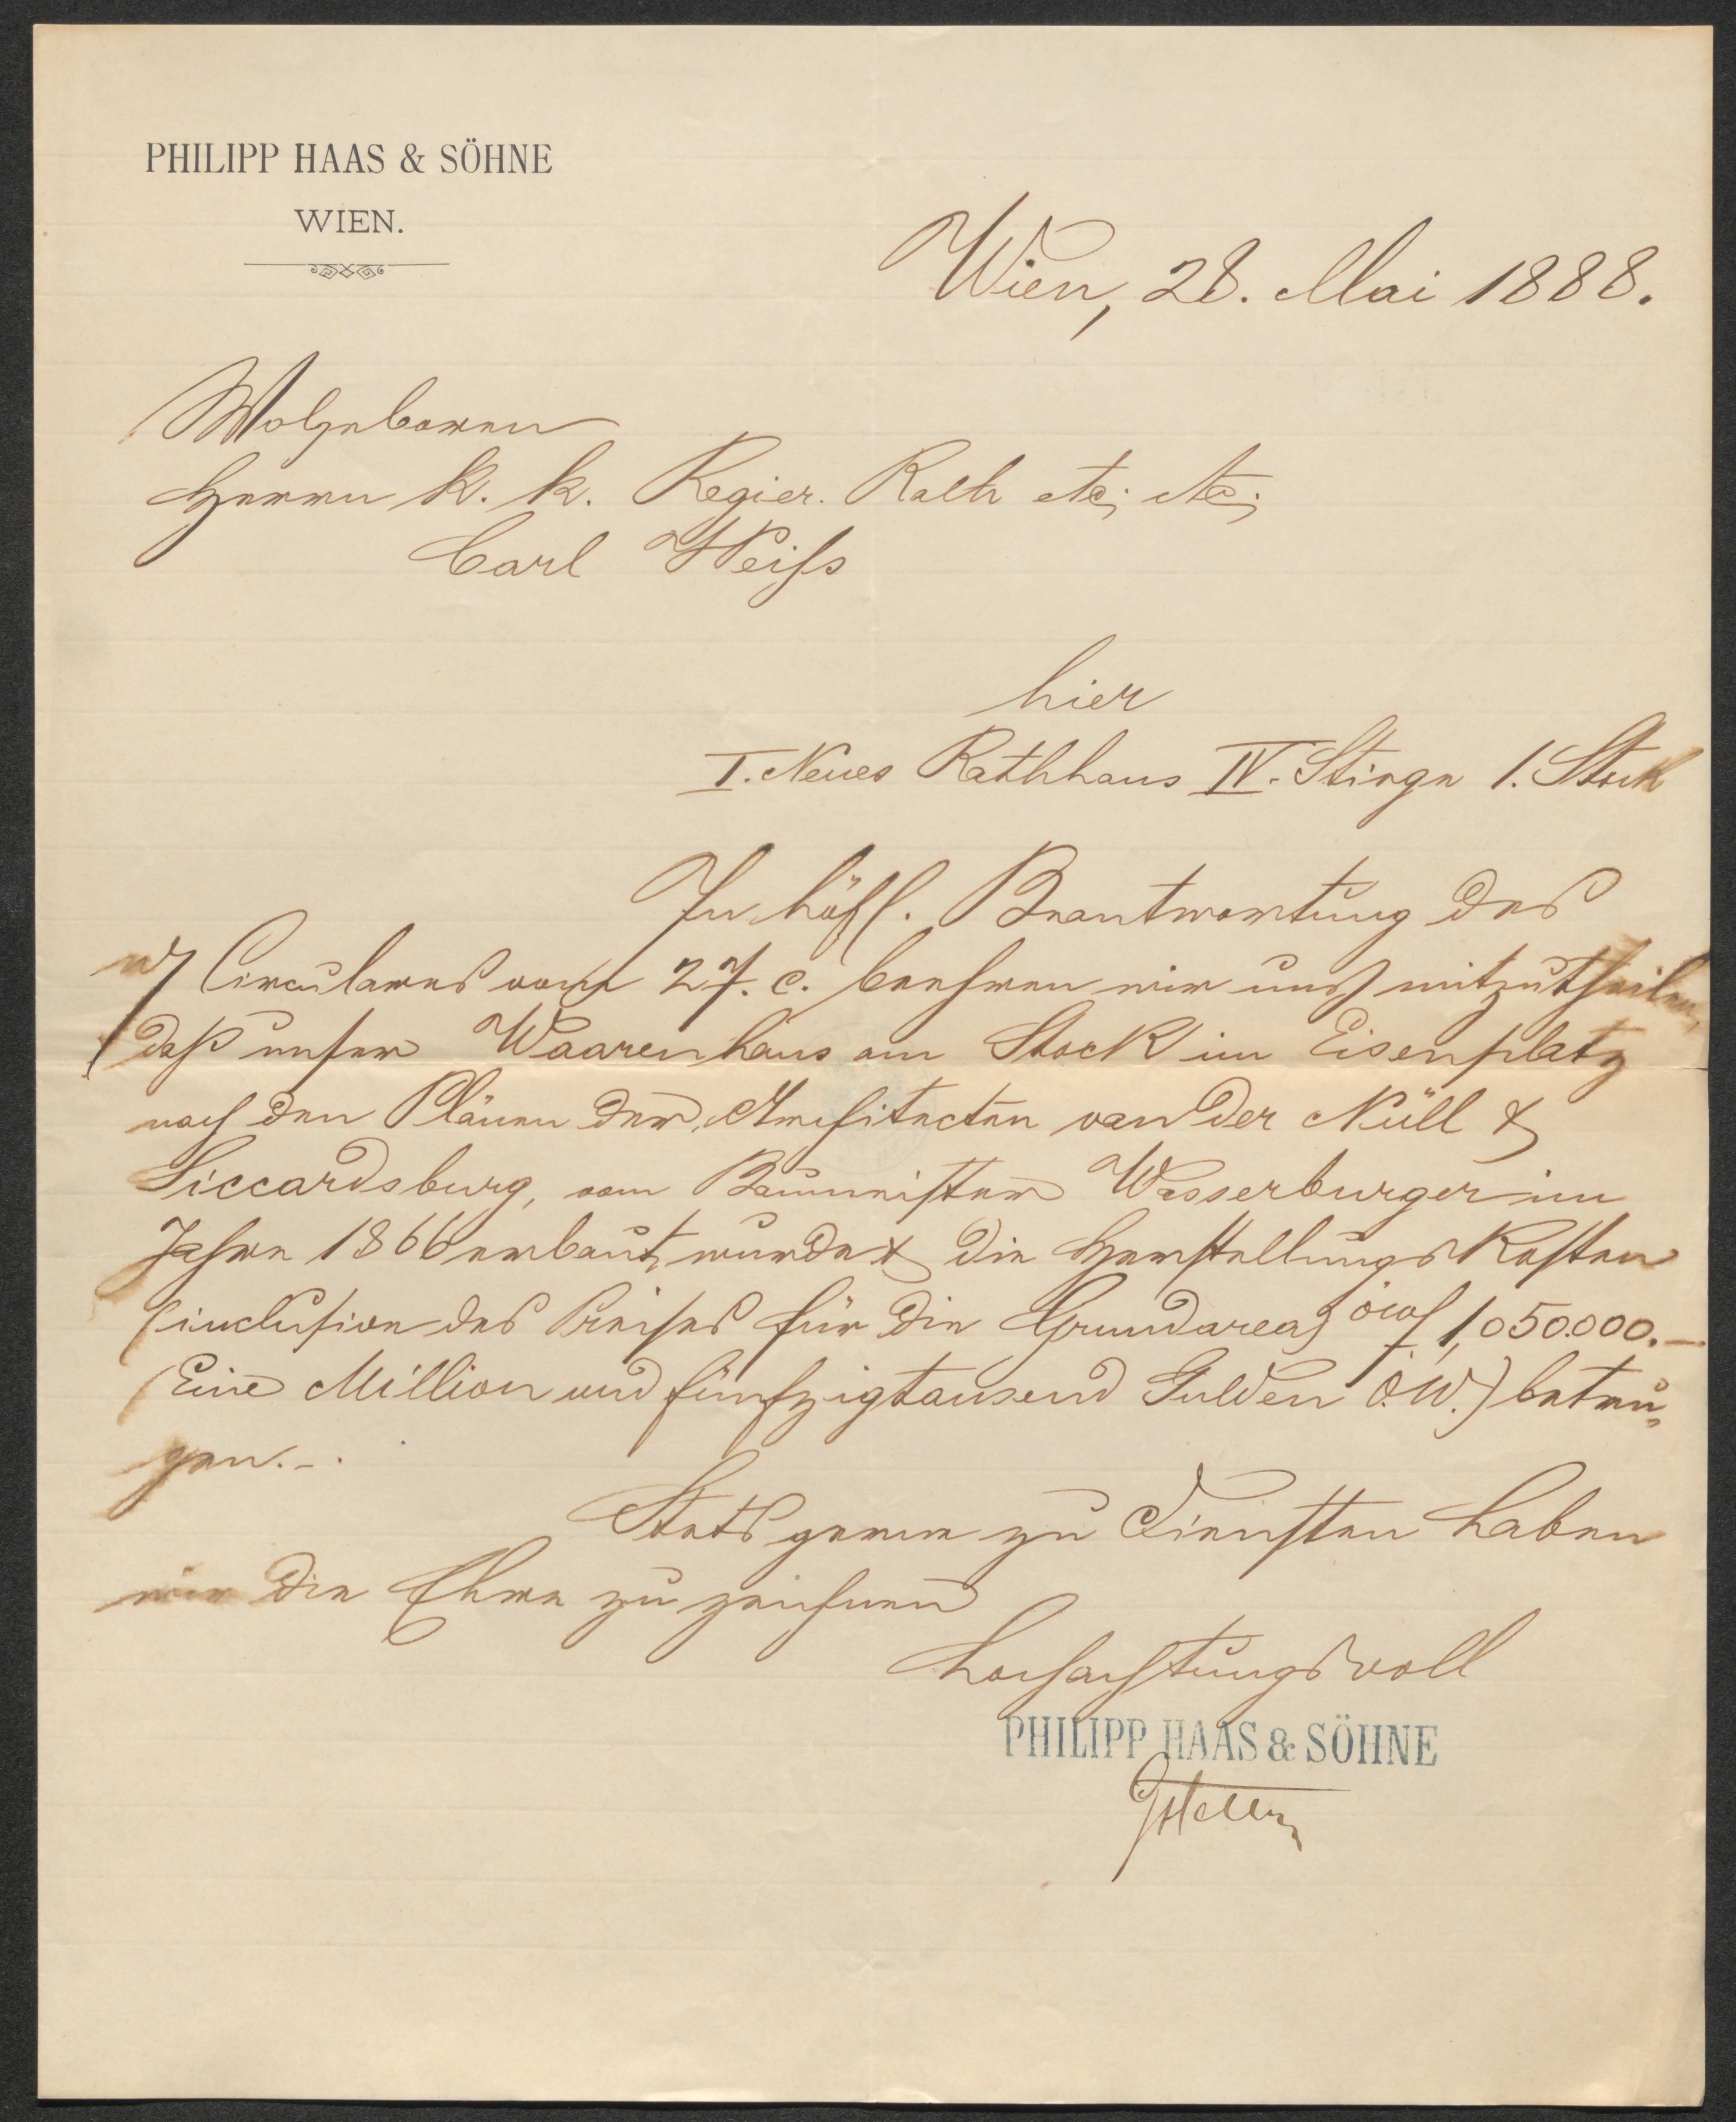 PHILIPP HAAS & SÖHNE
WIEN.
Wien, 28. Mai 1888.
Wolgeboren
Herrn k. k. Regier. Rath etc; etc;
Carl Weiss
hier
I. Neues Rathhaus IV. Stiege 1. Stock
In höfl. Beantwortung des
Circulares vom 27. c. beehren wir uns mitzutheilen,
daß unser Waarenhaus am Stock im Eisenplatz
nach den Plänen der Architecten van der Nüll &
Siccardsburg, vom Baumeister Wasserburger im
Jahre 1866 erbaut, wurde & die Herstellungs Kosten
(inclusive des Preises für die Grundarea) öw f 1,050.000.—
(Eine Million und fünfzigtausend Gulden Ö.W.) betru-
gen.-.
Stets gerne zu Diensten haben
wir die Ehre zu zeichnen
hochachtungsvoll
PHILIPP HAAS & SÖHNE